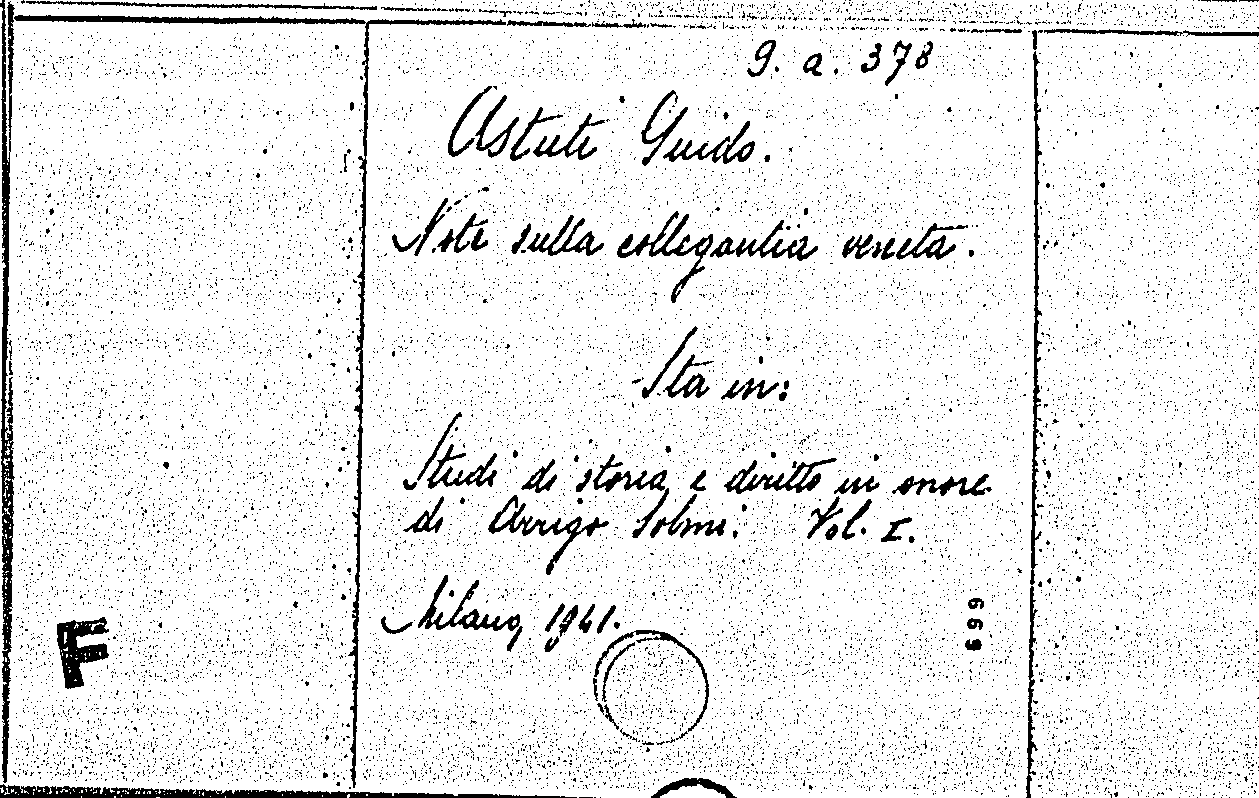 9. a. 378
Astuti Guido.
Note sulla collegantia veneta.
Sta in:
Studi di storia e diritto in onore
di Arrigo Solmi. Vol. I.
Milano, 1941.
699
F